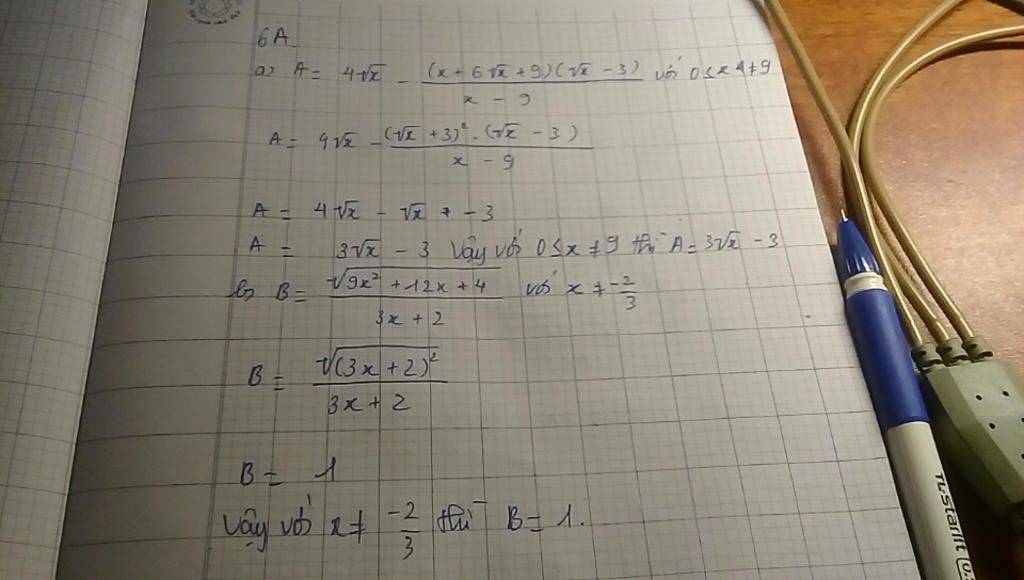 6A.
a) A = 4√x - (x + 6√x + 9)(√x - 3) / x - 9 với 0 ≤ x ≠ 9
A = 4√x - (√x + 3)² . (√x - 3) / x - 9
A = 4√x - √x + - 3
A = 3√x - 3 Vậy với 0 ≤ x ≠ 9 thì A = 3√x - 3
b) B = √9x² + 12x + 4 / 3x + 2 với x ≠ -2/3
B = √(3x + 2)² / 3x + 2
B = 1
Vậy với x ≠ -2/3 thì B = 1.
TL-Starlit